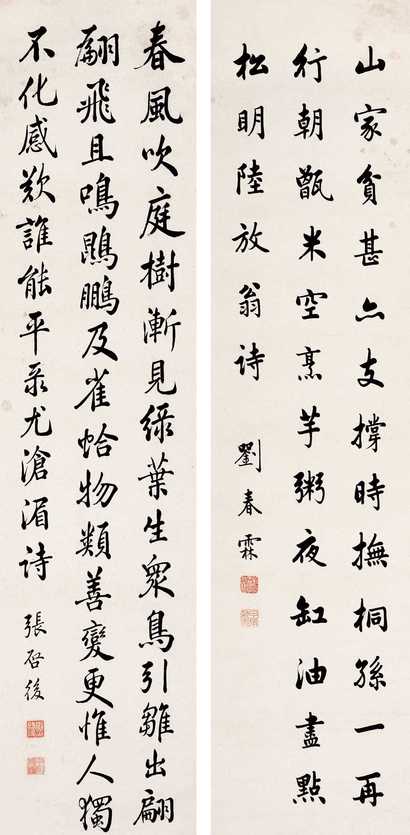 山家貧甚亦支撐時撫桐孫一再
行朝甑米空烹芋粥夜缸油盡點
松明陸放翁詩
劉春霖
春風吹庭樹漸見綠葉生眾鳥引雛出翩
翩飛且鳴鵾鵬及雀蛤物類善變更惟人獨
不化感歎誰能平录尤滄湄詩
張啓後